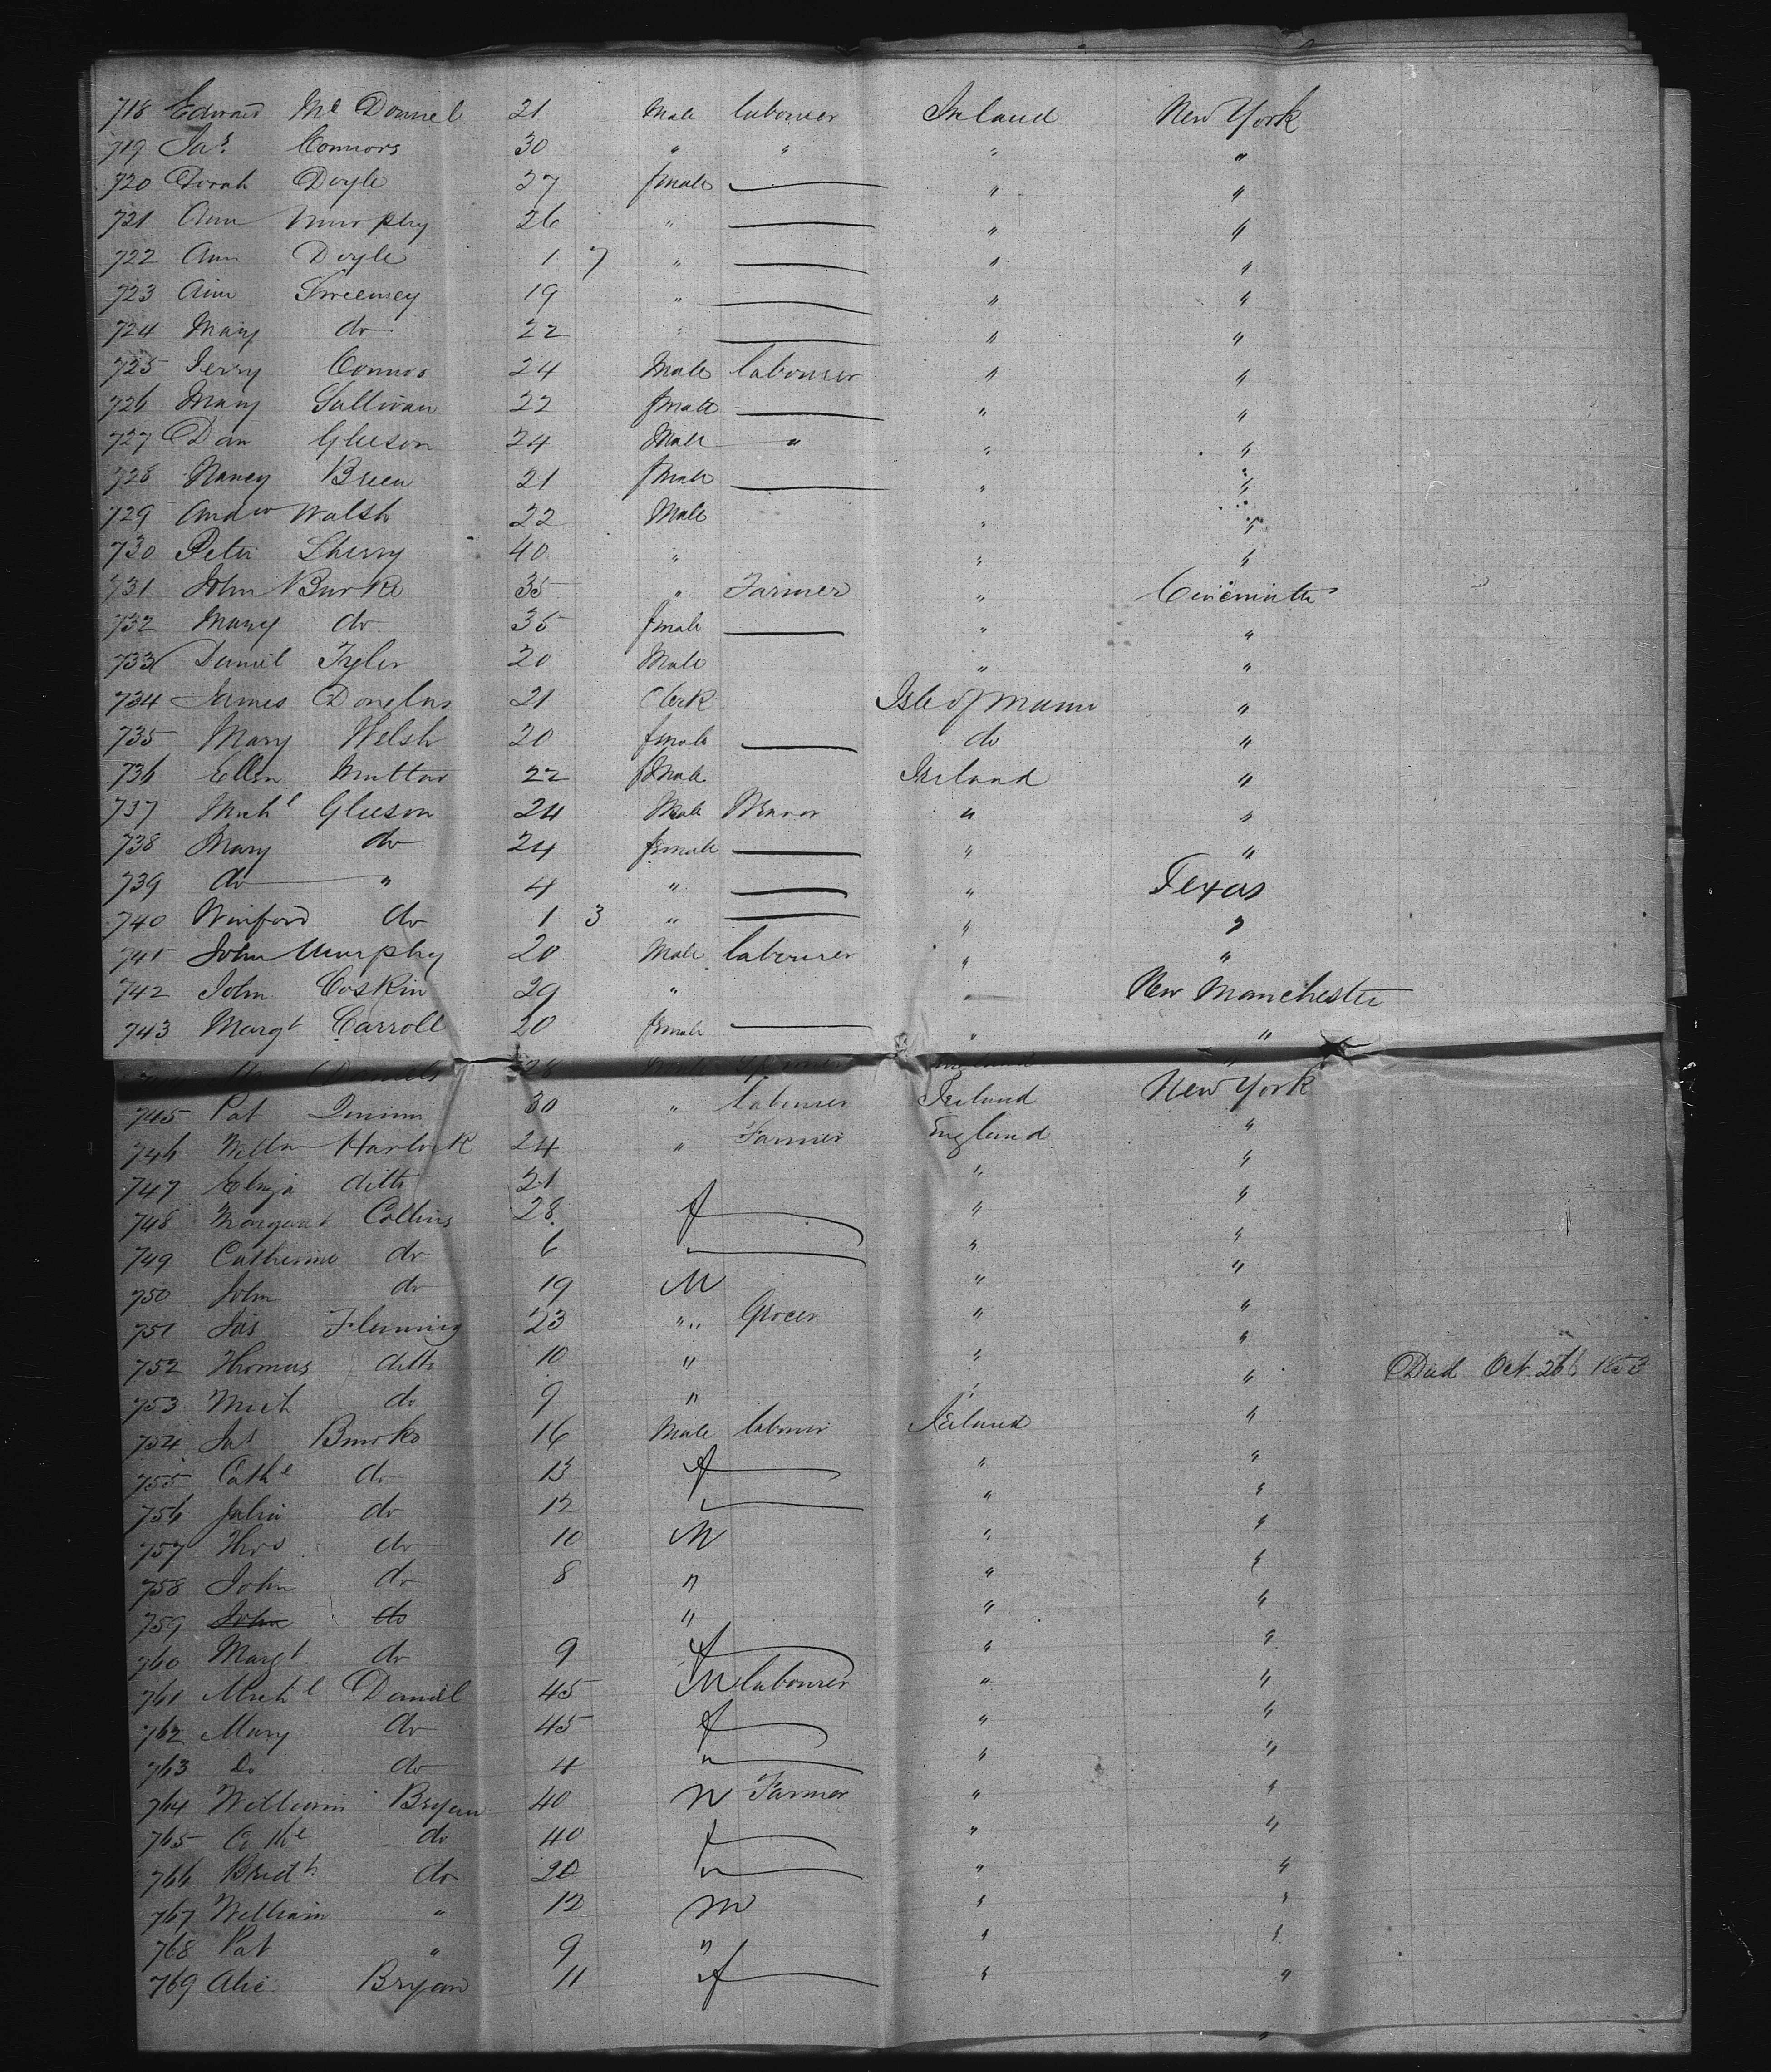 718 Edward McDonnel 21 Male labourer Ireland New York
719 Jas. Connors 30 " " " "
720 Dorah Doyle 27 female — " "
721 Ann Murphy 26 " — " "
722 Ann Doyle 1 7 " — " "
723 Ann Sweeney 19 " — " "
724 Mary do 22 " — " "
725 Jerry Connors 24 Male labourer " "
726 Mary Sullivan 22 female — " "
727 Dan Gleeson 24 Male " " "
728 Nancy Breen 21 female — " "
729 Andw Walsh 22 Male " "
730 Peter Sherry 40 " " "
731 John Burke 35 " Farmer "
732 Mary do 35 female — " "
733 Daniel Tyler 20 Male " "
734 James Douglas 21 Clerk Isle of Mann "
735 Mary Welsh 20 female — do "
736 Ellen 22 female Ireland "
737 Michl Gleeson 24 Male " "
738 Mary do 24 female — " "
739 do " 4 " — " Texas
740 Winford do 1 3 " — " "
741 John Murphy 20 Male labourer " "
742 John Coskin 29 " " New Manchester
743 Margt Carroll 20 female — " "
Daniels 28 England "
745 Pat 30 " labourer Ireland New York
746 Willm Harlock 24 " Farmer England "
747 Eliza ditto 21 " "
748 Margaret Collins 28 f — " "
749 Catherine do 6 " — " "
750 John do 19 M " "
751 Jas Fleming 23 " Grocer " "
752 Thomas ditto 10 " " "
753 Mich do 9 " " " Died Oct. 26th 1853
754 Jas Burke 16 Male labourer Ireland "
755 Cathe do 13 f — " "
756 Julia do 12 " — " "
757 Thos do 10 M " "
758 John do 8 " " "
759 John do " " "
760 Margt do 9 f — " "
761 Michl Daniel 45 M labourer " "
762 Mary do 45 f — " "
763 Do do 4 " — " "
764 William Bryan 40 M Farmer " "
765 Cathe do 40 f — " "
766 Bridt do 20 " — " "
767 William " 12 M " "
768 Pat " 9 " " "
769 Alice Bryan 11 f — " "